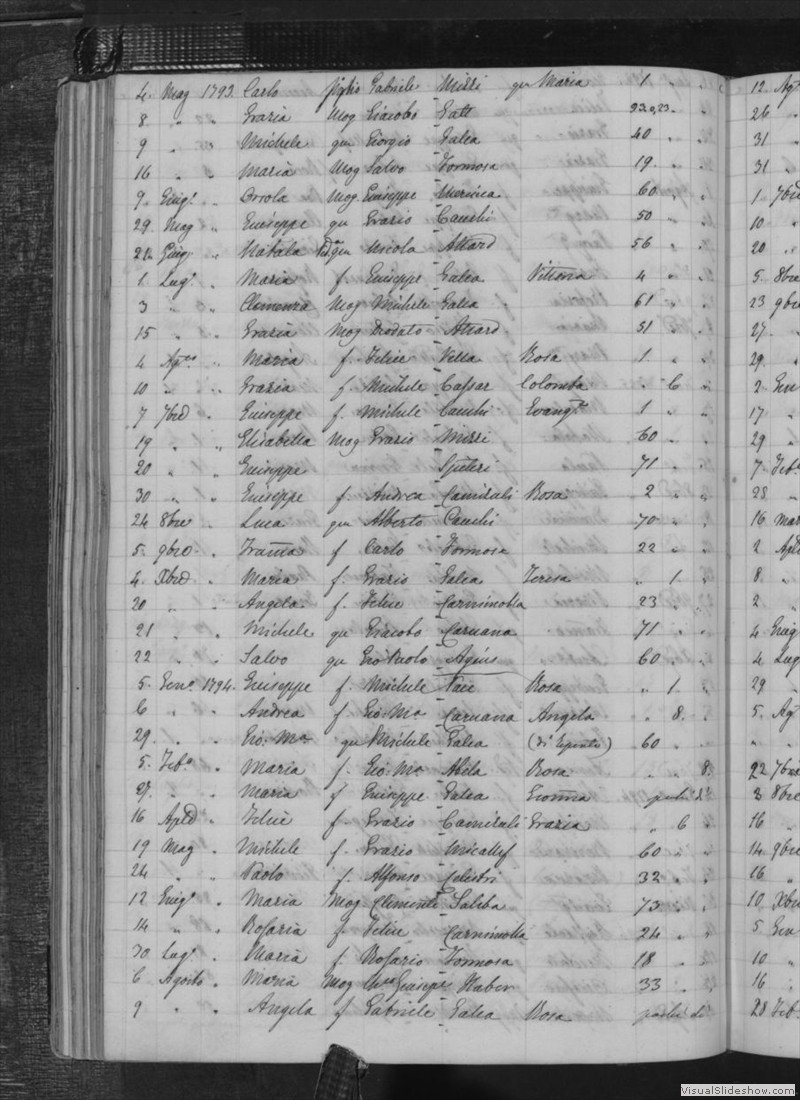 4 Mag 1793 Carlo figlio Gabriele Mizzi qu Maria 1 "
8 " " Grazia Mog Giacobo Gatt 23.0,23
9 " Michele qu Giorgio Galea 40 "
16 " " Maria Mog Salvo Formosa 19 "
9 Giug.o " Orsola Mog Giuseppe 60 "
29 Mag " Giuseppe qu Grazio Cauchi 50 "
21 Giug " Natala qu Nicola Attard 56 "
1 Lug.o " Maria f. Giuseppe Galea Vittoria 4 "
3 " " Clemenza Mog Michele Galea 61 "
15 " " Grazia Mog Deodato Attard 31 "
4 Ag.to " Maria f. Felice Vella Rosa 1 "
10 " " Grazia f. Michele Cassar Colomba " 6 "
7 7bre " Giuseppe f. Michele Cauchi Evang.ta 1 "
19 " " Elisabetta Mog Grazio Mizzi 60 "
20 " " Giuseppe Spiteri 71 "
30 " " Giuseppe f. Andrea Camilleri Rosa 2 "
24 8bre " Luca qu Alberto Cauchi 70 "
5 9bre " f Carlo Formosa 22 "
4 Xbre " Maria f. Grazio Galea Teresa " 1 "
20 " " Angela f. Felice 23 "
21 " " Michele qu Giacobo Caruana 71 "
22 " " Salvo qu Gio Paolo Agius 60 "
5 Gen.o 1794 Giuseppe f. Michele Rosa " 1 "
6 " " Andrea f. Gio. Ma Caruana Angela " 8 "
29 " " Gio. Ma qu Michele Galea 60 "
5 Feb.o " Maria f. Gio. Ma Abela Rosa " " 8
27 " " Maria f Giuseppe Galea
16 Aple " Felice f. Grazio Camilleri Grazia " 6 "
19 Mag " Michele f. Grazio Micallef 60 "
24 " " Paolo f. Alfonso 32 "
12 Giug.o " Maria Mog Clemente Saliba 73 "
14 " " Rosaria f. Felice 24 "
30 Lug.o " Maria f. Rosario Formosa 18 "
6 Agosto " Maria Mog Giuseppe Haber 33 "
9 " " Angela f Gabriele Galea Rosa
12 Ag
26
31
31
1 7bre
10
20
5 8bre
23 9bre
27
29
2 Gen
17
29
7 Feb
28
16 Mar
2 Aple
8
2
4 Giug
4 Lug
29
5 Ag
22 7bre
3 8bre
16
14 9bre
16
10 Xbre
5 Gen
10
16
28 Feb
VisualSlideshow.com